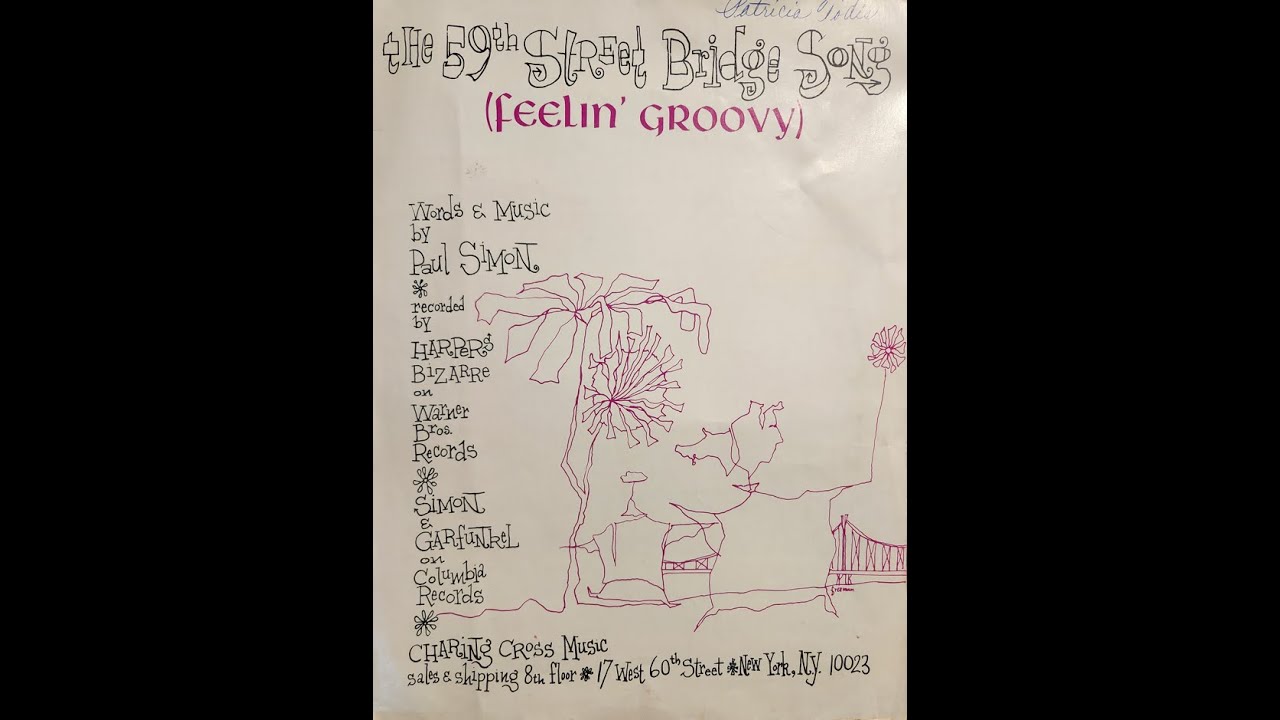 Patricia
the 59th Street Bridge Song
(feelin' groovy)
Words & Music
by
Paul Simon
recorded
by
HARPERS
BIZARRE
on
Warner
Bros.
Records
Simon
&
GARFUNKEL
on
Columbia
Records
CHARING CROSS MUSIC
sales & shipping 8th floor * 17 West 60th Street * New York, N.Y. 10023